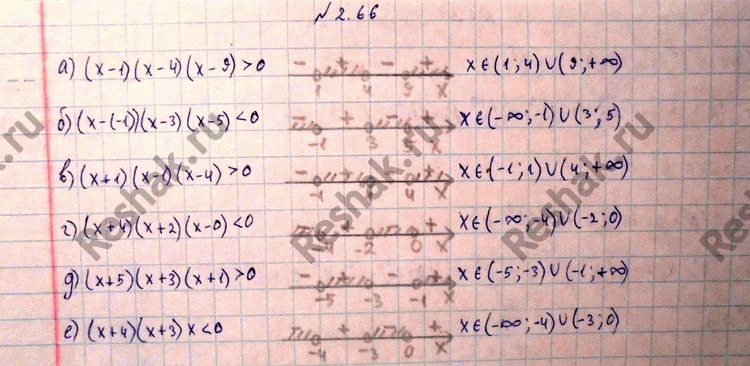 № 2.66
а) (x-1)(x-4)(x-9)>0 - + - + 1 4 9 x x∈(1;4)∪(9;+∞)
б) (x-(-1))(x-3)(x-5)<0 - + - + -1 3 5 x x∈(-∞;-1)∪(3;5)
в) (x+1)(x-1)(x-4)>0 - + - + -1 1 4 x x∈(-1;1)∪(4;+∞)
г) (x+4)(x+2)(x-0)<0 - + - + -4 -2 0 x x∈(-∞;-4)∪(-2;0)
д) (x+5)(x+3)(x+1)>0 - + - + -5 -3 -1 x x∈(-5;-3)∪(-1;+∞)
е) (x+4)(x+3)x<0 - + - + -4 -3 0 x x∈(-∞;-4)∪(-3;0)
Reshak.ru
Reshak.ru
Reshak.ru